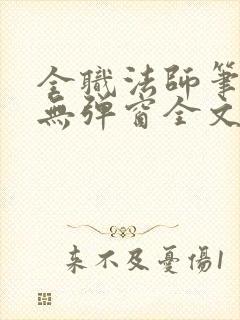 全職法師筆
無彈窗全文
來不及憂傷1